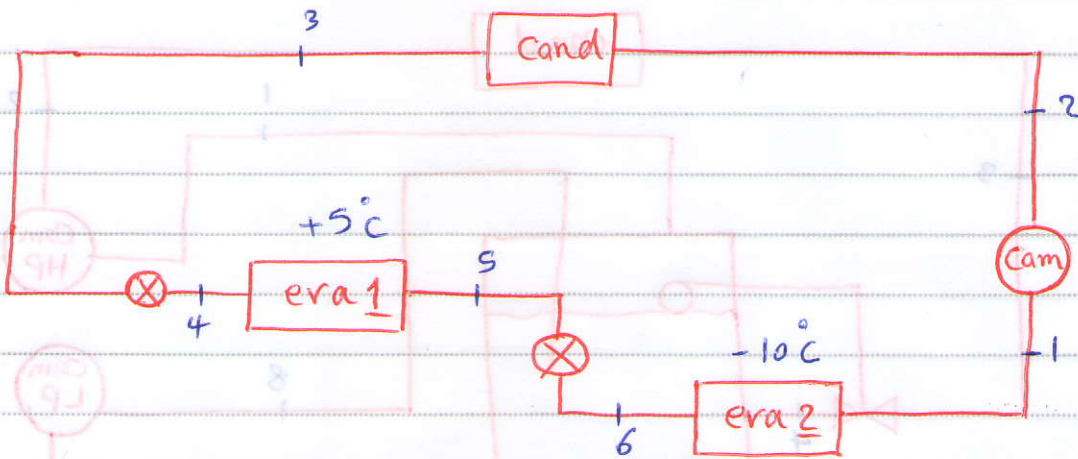 3
Cand
2
+5°C
5
Cam
eva 1
4
-10°C
1
eva 2
6